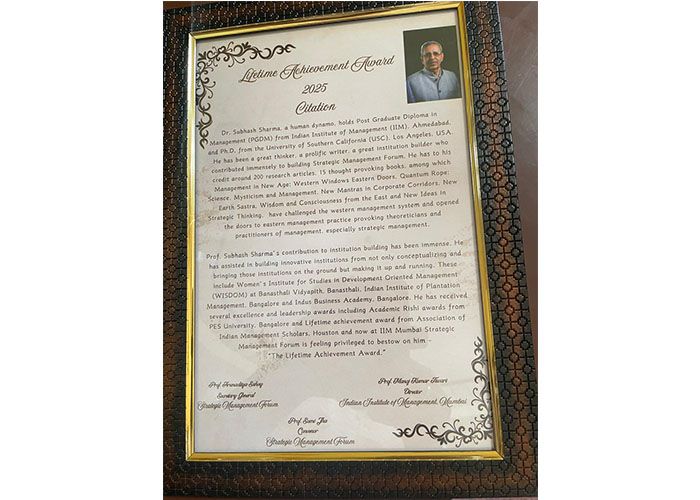 Lifetime Achievement Award
2025
Citation
Dr. Subhash Sharma, a human dynamo, holds Post Graduate Diploma in
Management (PGDM) from Indian Institute of Management (IIM), Ahmedabad,
and Ph.D. from the University of Southern California (USC), Los Angeles, USA.
He has been a great thinker, a prolific writer, a great institution builder who
contributed immensely to building Strategic Management Forum. He has to his
credit around 200 research articles, 15 thought provoking books, among which
Management in New Age: Western Windows Eastern Doors, Quantum Rope:
Science, Mysticism and Management, New Mantras in Corporate Corridors, New
Earth Sastra, Wisdom and Consciousness from the East and New Ideas in
Strategic Thinking, have challenged the western management system and opened
the doors to eastern management practice provoking theoreticians and
practitioners of management, especially strategic management.
Prof. Subhash Sharma's contribution to institution building has been immense. He
has assisted in building innovative institutions from not only conceptualizing and
bringing those institutions on the ground but making it up and running. These
include Women's Institute for Studies in Development Oriented Management
(WISDOM) at Banasthali Vidyapith, Banasthali, Indian Institute of Plantation
Management, Bangalore and Indus Business Academy, Bangalore. He has received
several excellence and leadership awards including Academic Rishi awards from
PES University, Bangalore and Lifetime achievement award from Association of
Indian Management Scholars, Houston and now at IIM Mumbai Strategic
Management Forum is feeling privileged to bestow on him -
"The Lifetime Achievement Award."
Prof. Sahay
Secretary General
Strategic Management Forum
Prof. Manoj Kumar Tiwari
Director
Indian Institute of Management, Mumbai
Prof. Jha
Convenor
Strategic Management Forum